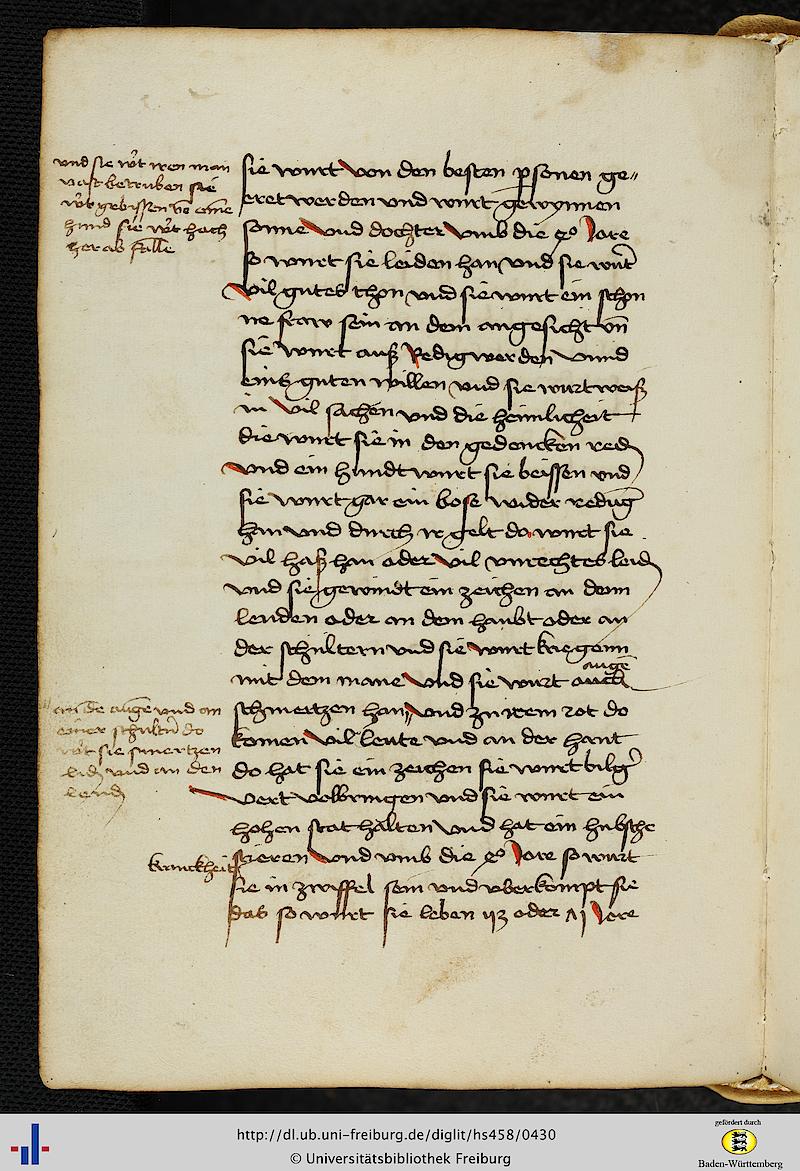 und sie wirt iren man
vast betruben sie
wirt gebissen vo eine
hund sie wirt hoch
herab falle
sie wurt von den besten personen ge„
eret werden und wurt gewynnen
sonne und dochter umb die Jore
so wurt sie leiden han und sie wurt
vil gutes thon und sie wurt ein schon
ne fraw sein an dem angesicht vn
sie wurt auß Redig werden unnd
eins guten willen und sie wurt weiß
in vil sachen und die heimlicheit
die wurt sie in den gedencken red
und ein hundt wurt sie beissen und
sie wurt gar ein bose wider redug
han und durch ir gelt do wurt sie
vil haß han oder vil unrechtes leid
und sie gewindt ein zeichen an dem
lenden oder an dem haubt oder an
der schultern und sie wurt kriegenn
auge
mit dem mane und sie wurt auch
schmertzen han und zu irem rot do
komen vil leute und an der hant
do hat sie ein zeichen sie wurt bilg
vert volbringen und sie wurt ein
hohen stat halten und hat ein hubsche
stieren und umb die Jore so wurt
sie in zwiffel sein und uberkompt sie
das so wurt sie leben oder Jore
an de auge und an
einer schultn do
wirt sie smertzen
lid und an den
lend
kranckheit
http://dl.ub.uni-freiburg.de/diglit/hs458/0430
© Universitätsbibliothek Freiburg
gefördert durch
Baden-Württemberg